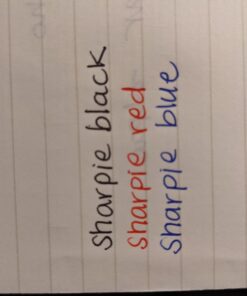 sharpie black
sharpie red
sharpie blue